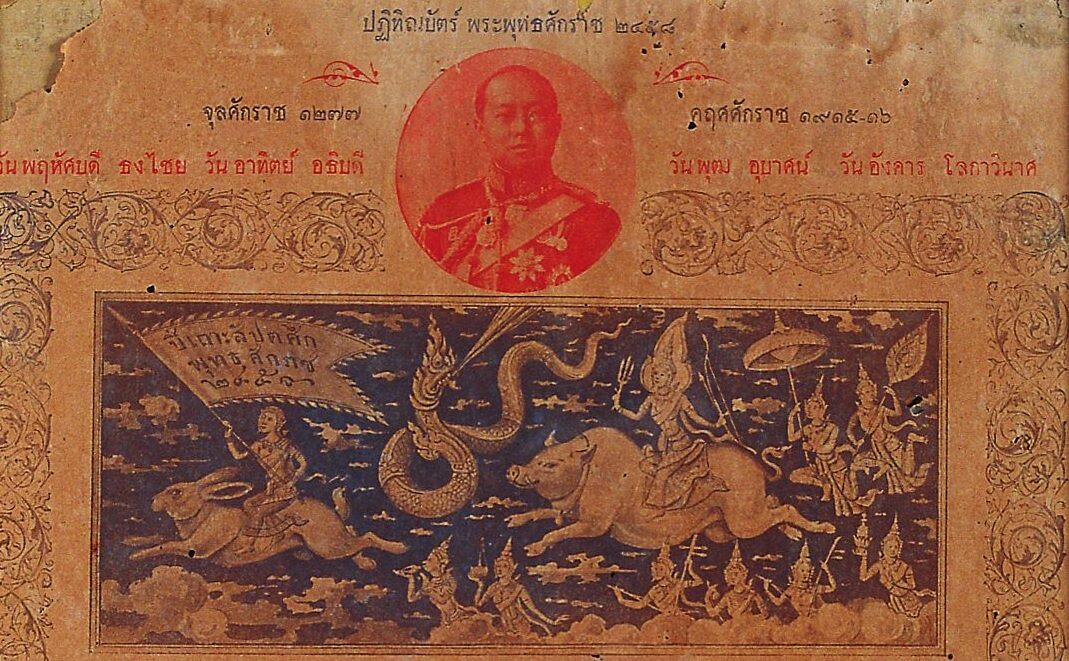 ปฏิทินบัตร์ พระพุทธศักราช ๒๔๕๘
จุลศักราช ๑๒๗๗
คฤศศักราช ๑๙๑๕-๑๖
วัน พฤหัศบดี ธงไชย วัน อาทิตย์ อธิบดี
วัน พุฒ อุบาศน์ วัน อังคาร โลกาวินาศ
ปีเถาะสัปตศัก
พุทธศักราช